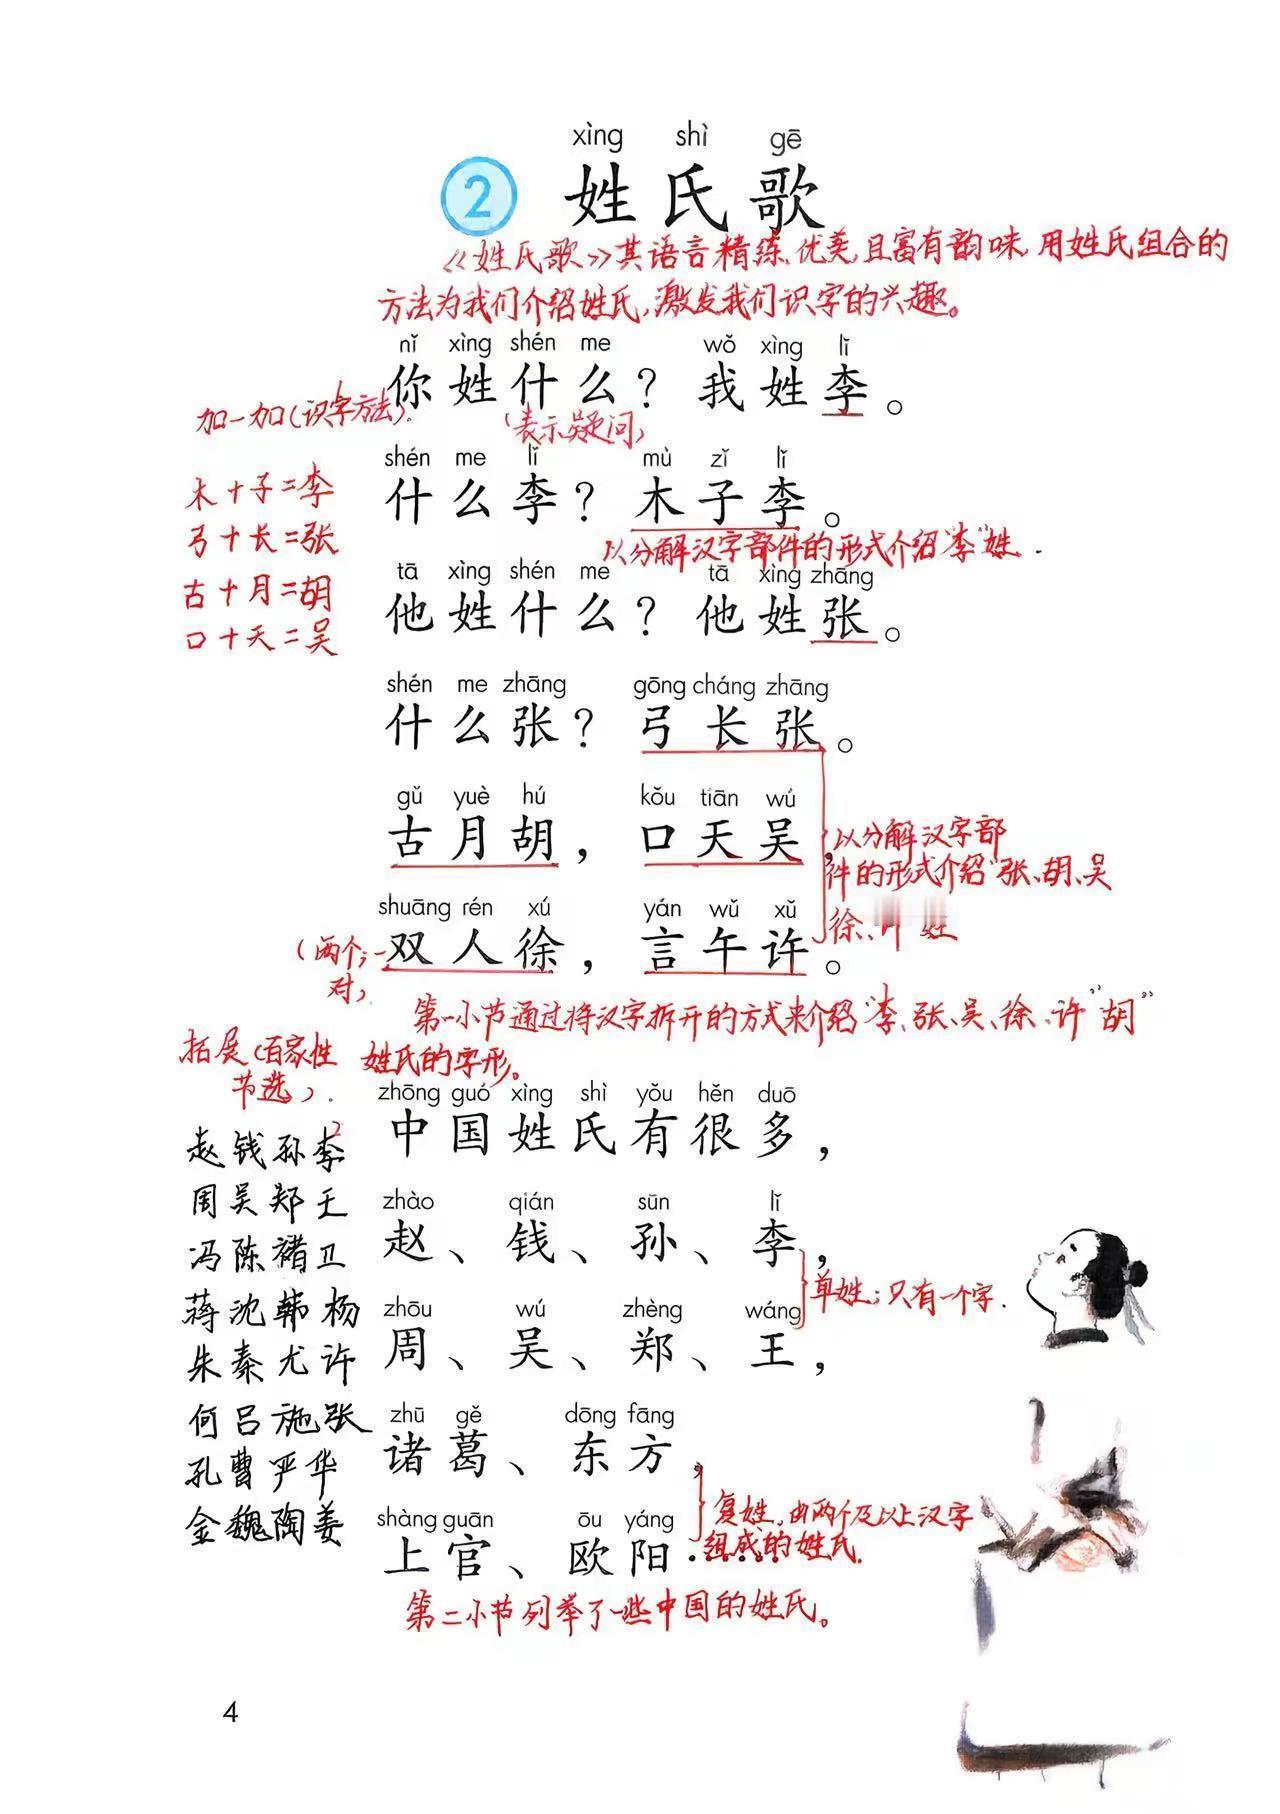 xìng shì gē
2 姓氏歌
《姓氏歌》其语言精练、优美,且富有韵味,用姓氏组合的
方法为我们介绍姓氏,激发我们识字的兴趣。
nǐ xìng shén me wǒ xìng lǐ
你姓什么?我姓李。
加一加(识字方法).
(表示疑问)
shén me lǐ mù zǐ lǐ
什么李?木子李。
木+子=李
弓+长=张
古+月=胡
口+天=吴
以分解汉字部件的形式介绍“李”姓.
tā xìng shén me tā xìng zhāng
他姓什么?他姓张。
shén me zhāng gōng cháng zhāng
什么张?弓长张。
gǔ yuè hú kǒu tiān wú
古月胡,口天吴,
以分解汉字部
件的形式介绍“张、胡、吴
徐、许 姓
shuāng rén xú yán wǔ xǔ
双人徐,言午许。
(两个;一
对)
第一小节通过将汉字拆开的方式来介绍“李、张、吴、徐、许”胡”
姓氏的字形。
拓展(百家性
节选).
zhōng guó xìng shì yǒu hěn duō
中国姓氏有很多,
zhào qián sūn lǐ
赵、钱、孙、李,
单姓;只有一个字.
zhōu wú zhèng wáng
周、吴、郑、王,
zhū gě dōng fāng
诸葛、东方,
复姓,由两个及以上汉字
组成的姓氏.
shàng guān ōu yáng
上官、欧阳······
第二小节列举了一些中国的姓氏。
赵钱孙李
周吴郑王
冯陈褚卫
蒋沈韩杨
朱秦尤许
何吕施张
孔曹严华
金魏陶姜
4